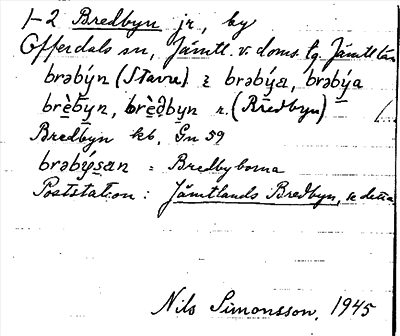 1-2 Bredbyn jr, by
Offerdals sn, Jämtl. v. doms. tg. Jämtl. län
brəbýn (Stavre) ɩ brəbýa, brəbýa
brèbyn, brèdbyn r. (Bredbyn)
Bredbyn kb, Gn 59
brəbýsan = Bredbyborna
Poststation: Jämtlands Bredbyn, se detta
Nils Simonsson, 1945